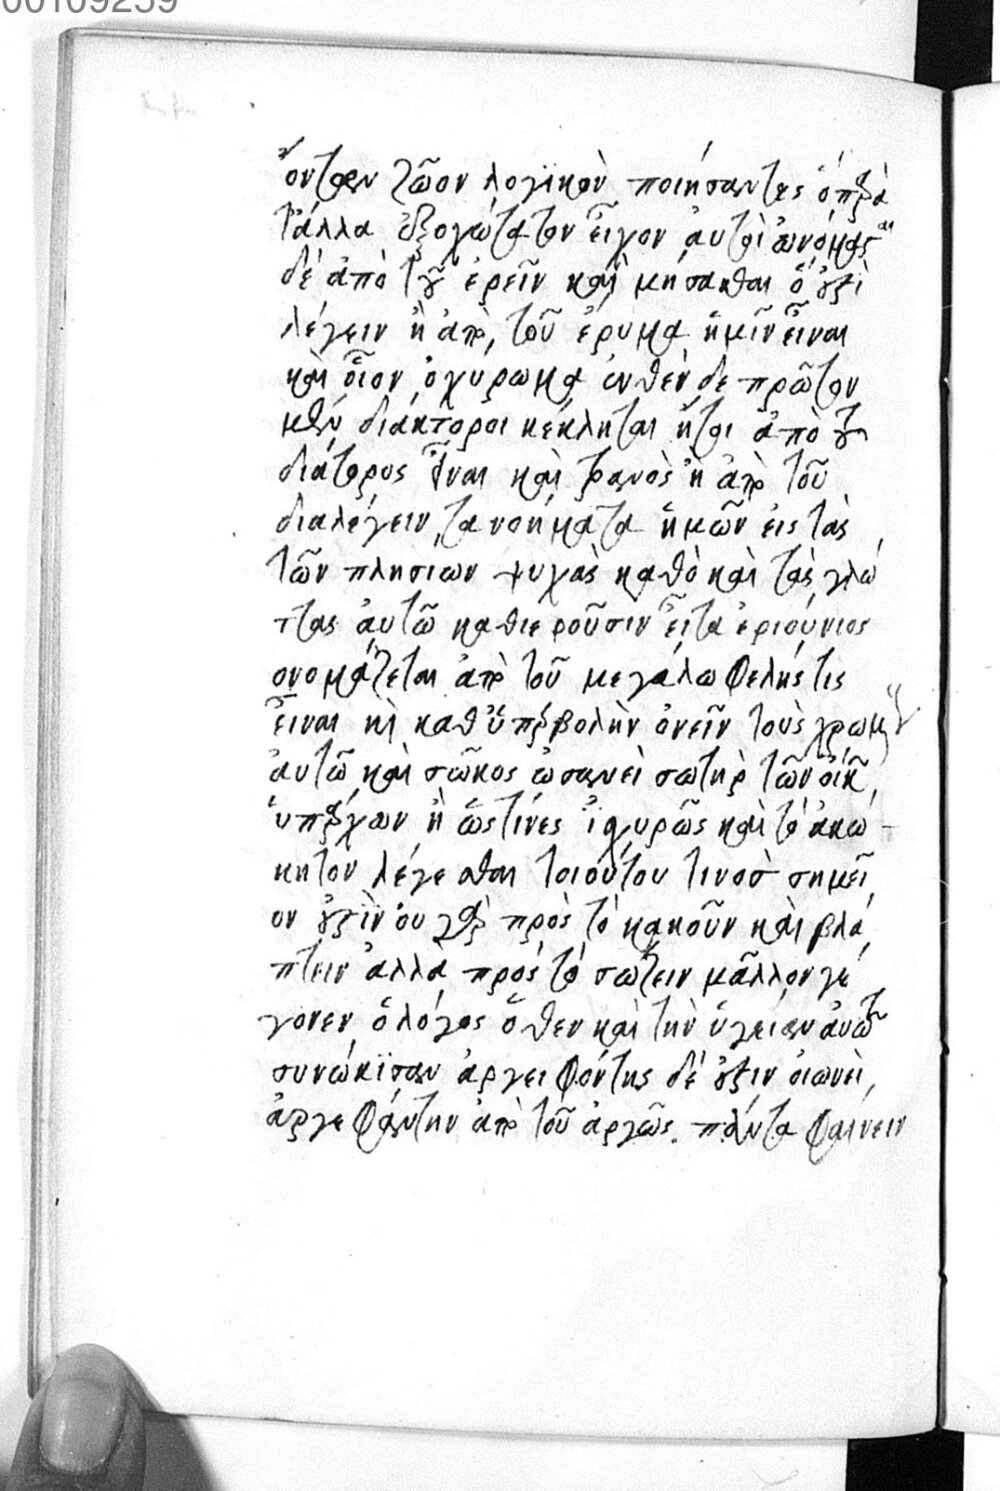 00109259
ὄντων ζῶον λογικὸν ποιήσαντες ὁ παρὰ
τἄλλα ἐξοχώτατον εἶχον αὐτοὶ ὠνόμασται
δὲ ἀπὸ τοῦ ἐρεῖν καὶ μήσασθαι ὅ ἐστὶ
λέγειν ἢ ἀπὸ τοῦ ἔρυμα ἡμῖν εἶναι
καὶ οἷον ὀχύρωμα ἐνθένδε πρῶτον
μὲν διάκτοροι κέκληται ἤτοι ἀπὸ τοῦ
διάτορος εἶναι καὶ τρανὸς ἢ ἀπὸ τοῦ
διαλέγειν τα νοήματα ἡμῶν εἰς τὰς
τῶν πλησίων ψυχὰς καθὸ καὶ τὰς γλώ
ττας αὐτῶ καθιεροῦσιν εἶτα ἐριούνιος
ονομάζεται ἀπὸ τοῦ μεγάλω φελής τις
εἶναι κὶ καθ ὑπερβολὴν ὀνεῖν τοὺς χρωμένους
αὐτῶ καὶ σῶκος ὡσανεὶ σωτὴρ τῶν οἴκων
ὑπάρχων ἢ ὥς τίνες ἰσχυρῶς καὶ τὸ ἀκά
κητον λέγεσθαι τοιούτου τινοσ σημεῖ
ον ἐστὶν ὁυ γὰρ πρὸς τὸ κακοῦν καὶ βλά
πτειν ἀλλὰ πρὸς τὸ σώζειν μᾶλλον γέ
γονεν ὁ λόγος ὅθεν καὶ τὴν ὑγείαν ἀυτῶ
συνώκϊσαν ἀργειφόντης δέ ἐστιν οιωνεὶ
ἀργεφάντην ἀπὸ τοῦ ἀργῶς πάντα φαίνειν